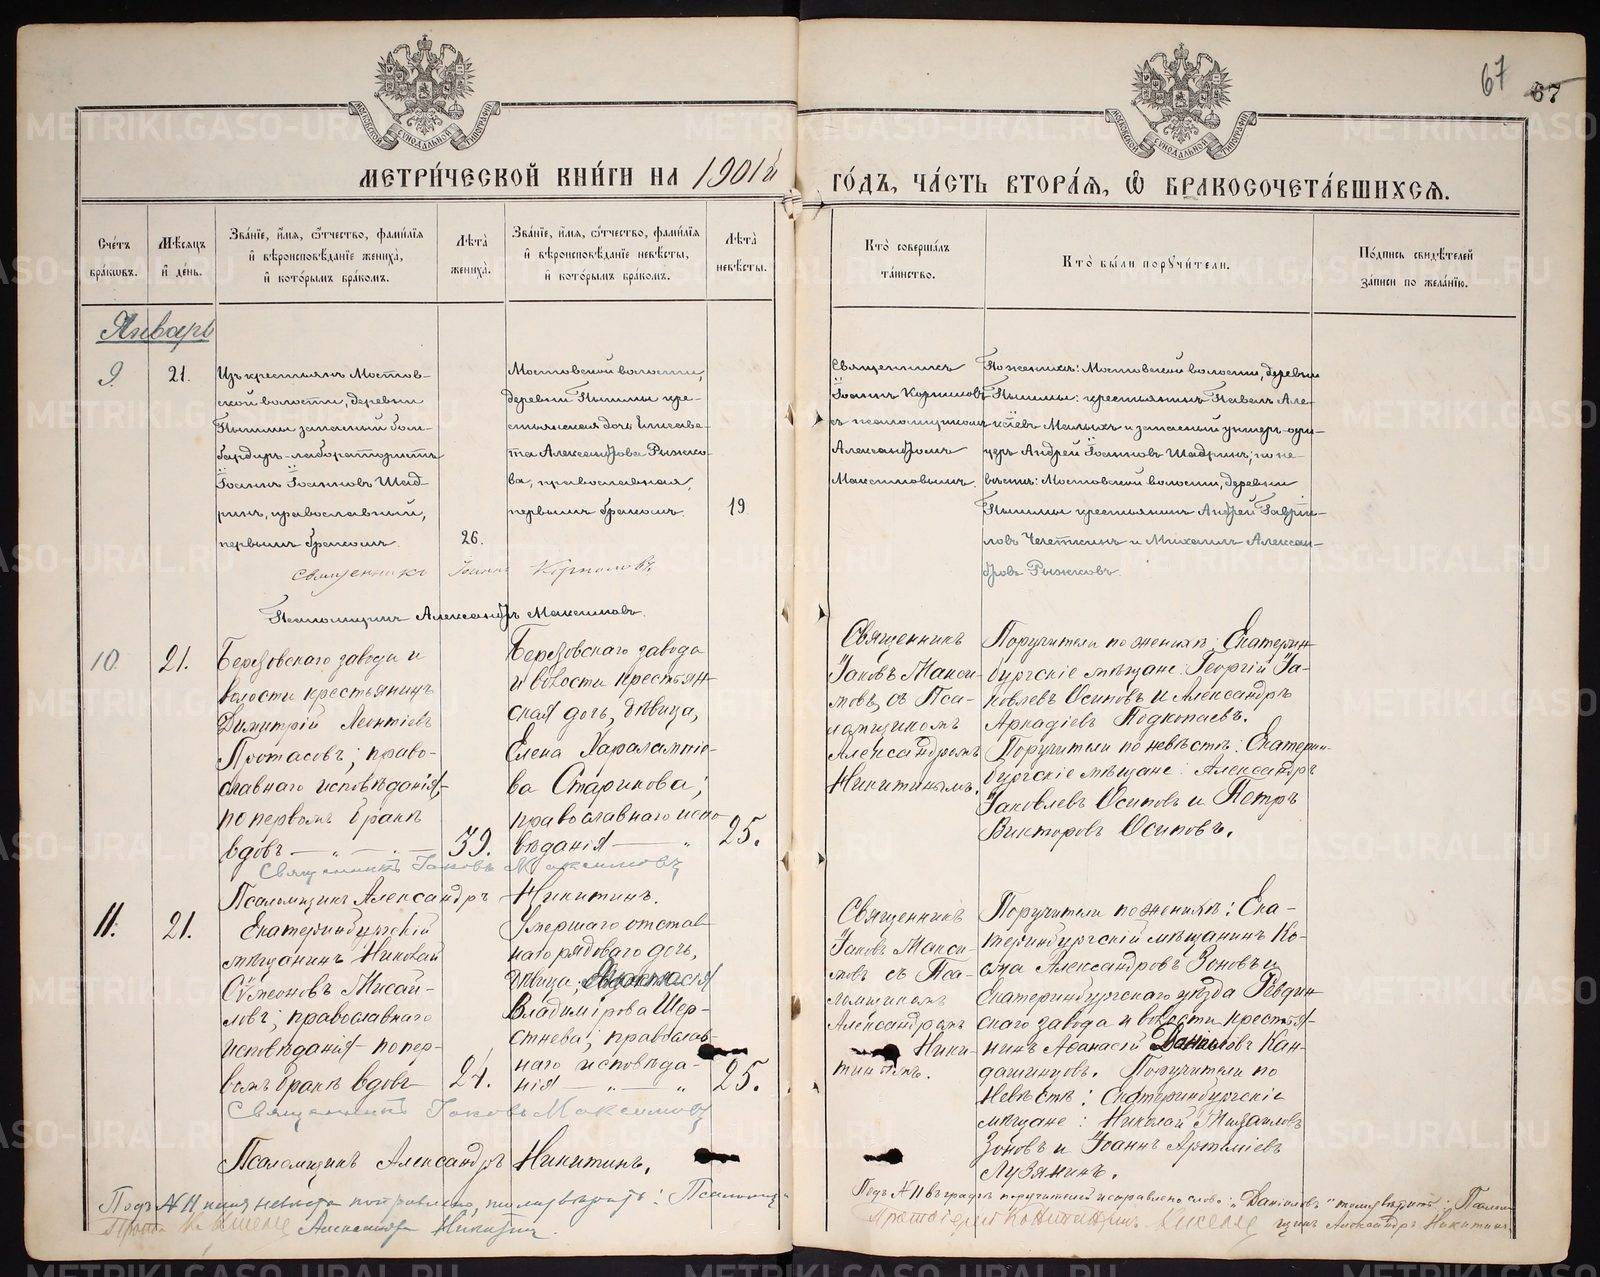 67
67
МОСКОВСКОЙ СѴНОДАЛЬНОЙ ТИПОГРАФІИ
МОСКОВСКОЙ СѴНОДАЛЬНОЙ ТИПОГРАФІИ
МЕТРИ́ЧЕСКОЙ КНИ́ГИ НА 1901й
ГО́ДЪ, ЧА́СТЬ ВТОРА́Я, Ѿ БРАКОСОЧЕТА́ВШИХСЯ.
Сче́тъ
бра́ковъ.
Мѣ́сяцъ
и҆ де́нь.
Зва́нїе, и҆́мя, ѻ҆́тчество, фами́лїя
и҆ вѣроисповѣ́данїе жениха̀,
и҆ кото́рымъ бра́комъ.
Лѣта̀
жениха̀.
Зва́нїе, и҆́мя, ѻ҆́тчество, фами́лїя
и҆ вѣроисповѣ́данїе невѣ́сты,
и҆ кото́рымъ бра́комъ.
Лѣта̀
невѣ́сты.
Кто̀ соверша́лъ
та́инство.
Кто̀ бы́ли порꙋчи́тели.
По́дпись свидѣ́телей
за́писи по жела́нїю.
Январь
9.
21.
Изъ крестьянъ Мостов-
ской волости, деревни
Пышмы запасный бом-
бардиръ-лаборатористъ
Іоаннъ Іоанновъ Шад-
ринъ, православный,
первымъ бракомъ.
26.
Мостовской волости,
деревни Пышмы кре-
стьянская дочь Елисаве-
та Александрова Рыжко-
ва, православная,
первымъ бракомъ.
19
Священникъ
Іоаннъ Корниловъ
съ псаломщикомъ
Александромъ
Максимовымъ.
По женихѣ: Мостовской волости, деревни
Пышмы: крестьянинъ Павелъ Але-
ксіевъ Малыхъ и запасный унтеръ-офи-
церъ Андрей Іоанновъ Шадринъ; по не-
вѣстѣ: Мостовской волости, деревни
Пышмы крестьянинъ Андрей Гаврiи-
ловъ Чететкинъ и Михаилъ Алексан-
дровъ Рыжковъ.
Священникъ Іоаннъ Корниловъ.
Псаломщикъ Александръ Максимовъ.
10.
21.
Березовскаго завода и
волости крестьянинъ
Димитрій Леонтіевъ
Протасовъ; право-
славнаго исповѣданія;
по первомъ бракѣ
вдовъ — „ — „ —
39.
Березовскаго завода
и волости крестьян-
ская дочь, дѣвица,
Елена Харалампіо-
ва Старикова;
православнаго испо-
вѣданія — „
25.
Священникъ
Іаковъ Макси-
мовъ, съ Пса-
ломщикомъ
Александромъ
Никитинымъ.
Поручители по женихѣ: Екатерин-
бургскіе мѣщане: Георгій Іа-
ковлевъ Осиповъ и Александръ
Аркадіевъ Подкопаевъ.
Поручители по невѣстѣ: Екатерин-
бургскіе мѣщане: Александръ
Іаковлевъ Осиповъ и Петръ
Викторовъ Осиповъ.
Священникъ Іаковъ Максимовъ
Псаломщикъ Александръ Никитинъ.
11.
21.
Екатеринбургскій
мѣщанинъ Николай
Сѵмеоновъ Мисаи-
ловъ; православнаго
исповѣданія по пер-
вомъ бракѣ вдовъ
24.
Умершаго отстав-
наго рядоваго дочь,
дѣвица,
Владимірова Шер-
стнева; православ-
наго исповѣда-
нія — „ — „
25.
Священникъ
Іаковъ Макси-
мовъ съ Пса-
ломщикомъ
Александромъ
Ники-
тинымъ.
Поручители по женихѣ: Ека-
теринбургскій мѣщанинъ Ко-
сма Александровъ Зоновъ и
Екатеринбургскаго уѣзда Ревдин-
скаго завода и волости крестья-
нинъ Аѳанасій Даніиловъ Кан-
дашинцовъ. Поручители по
невѣстѣ: Екатеринбургскіе
мѣщане: Николай Михаиловъ
Зоновъ и Іоаннъ Артеміевъ
Лузянинъ.
Священникъ Іаковъ Максимовъ
Псаломщикъ Александръ Никитинъ.
Подъ № 11 имя невѣсты поправлено,
Александръ Никитинъ.
Подъ № 11 въ графѣ поручителей исправлено слово: „Даніиловъ" тому вѣрить: Псалом-
щикъ Александръ Никитинъ.
Протоіерей Константинъ
METRIKI.GASO-URAL.RU